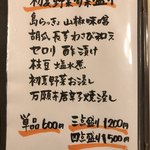 初夏野菜の菜盛り
島らっきょ 山椒味噌
胡瓜 長芋 わさび和え
セロリ 酢漬け
枝豆 塩水煮
初夏野菜お浸し
万願寺唐辛子焼浸し
単品600円 三点盛り1200円
四点盛り1500円